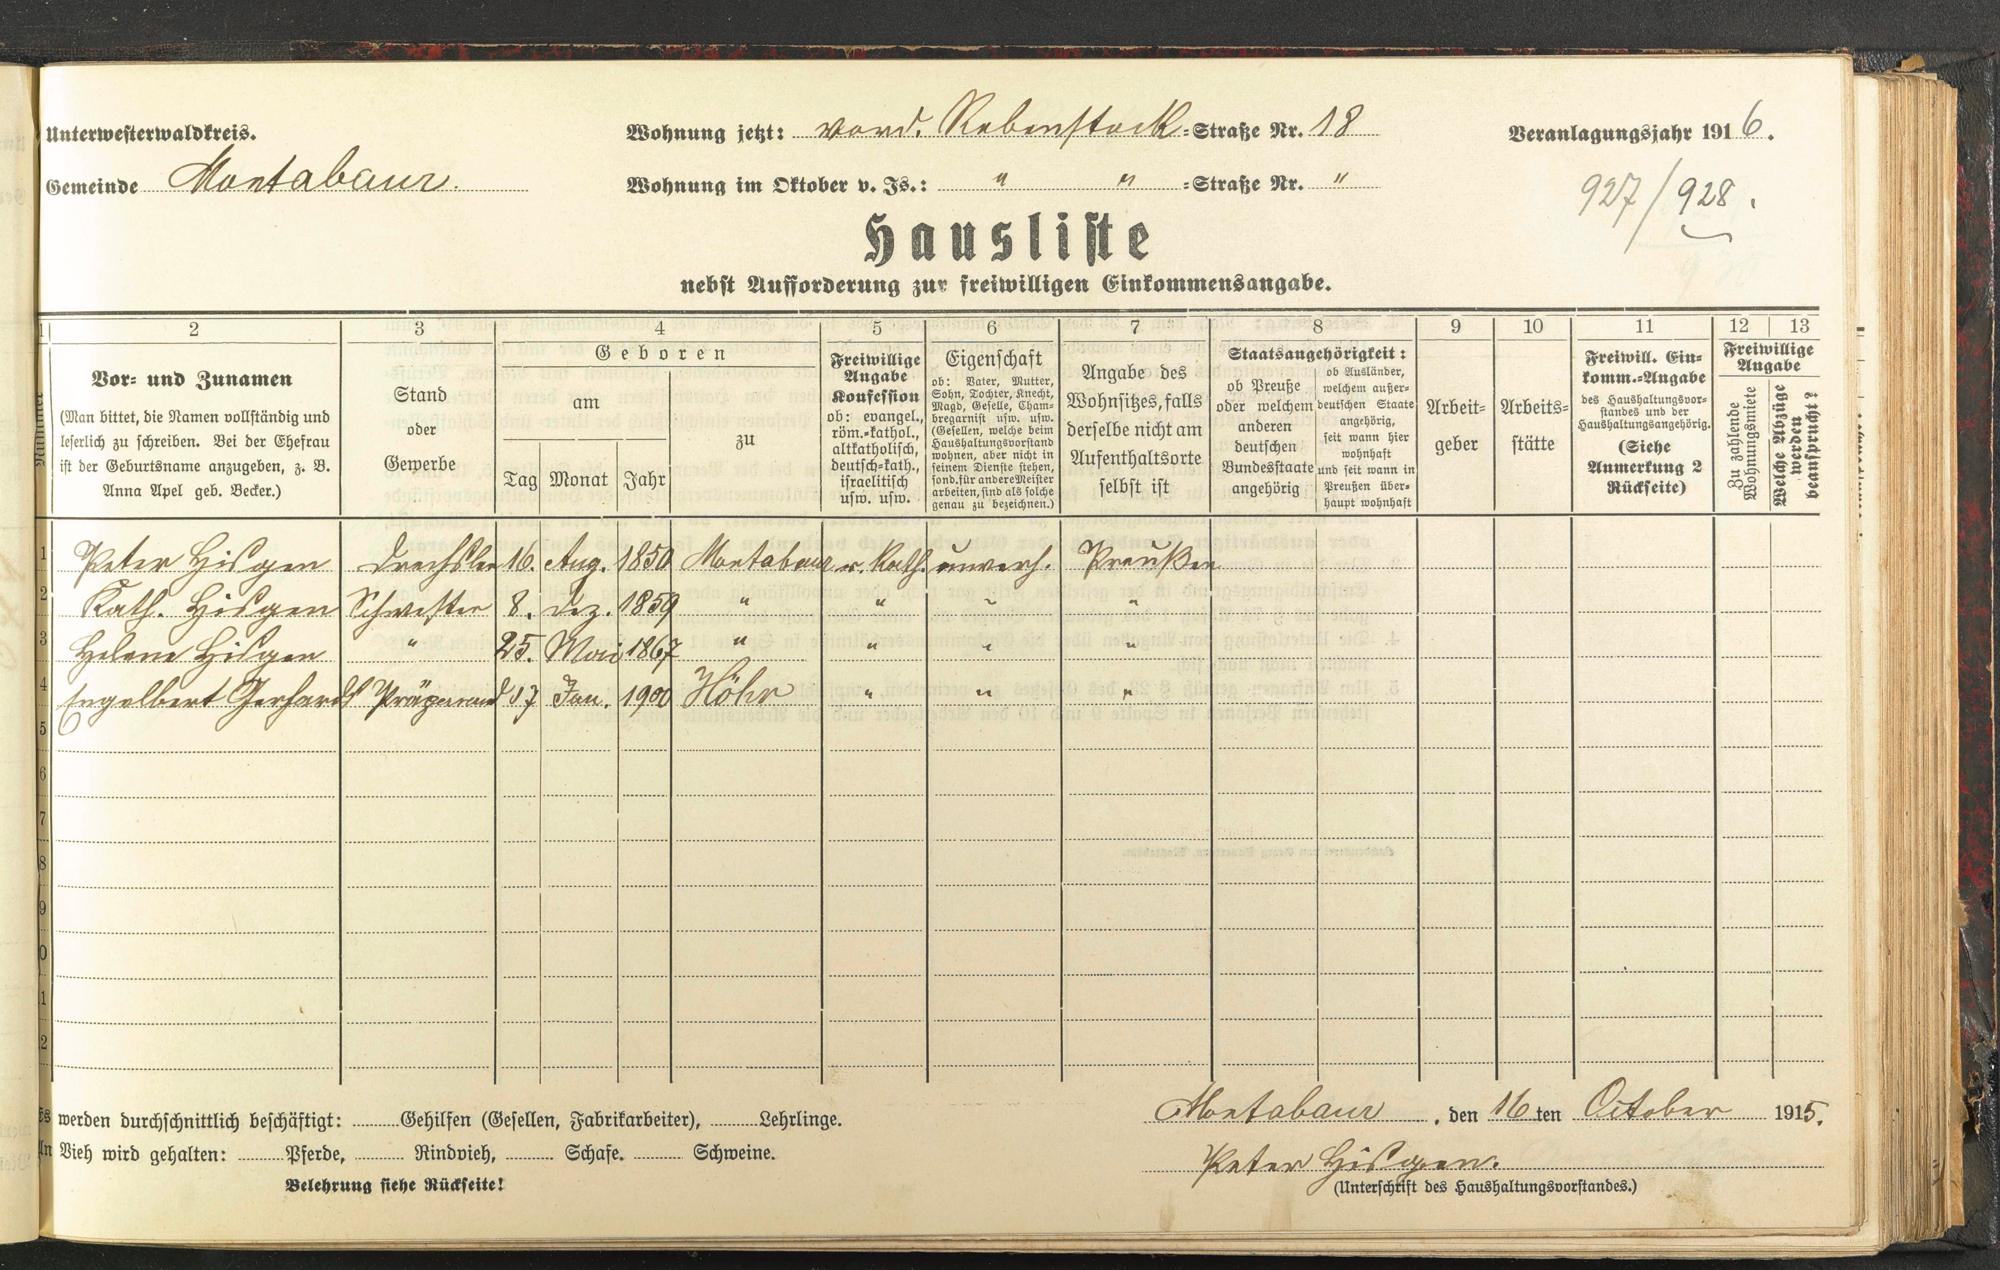 Unterwesterwaldkreis.
Gemeinde Montabaur.
Wohnung jetzt: vord. Rebenstock-Straße Nr. 18
Wohnung im Oktober v. Js.: " " -Straße Nr. "
Veranlagungsjahr 1916.
927/928.
Hausliste
nebst Aufforderung zur freiwilligen Einkommensangabe.
1 2 3 4 5 6 7 8 9 10 11 12 13
Nummer
Vor- und Zunamen
(Man bittet, die Namen vollständig und
leserlich zu schreiben. Bei der Ehefrau
ist der Geburtsname anzugeben, z. B.
Anna Apel geb. Becker.)
Stand
oder
Gewerbe
Geboren
am
Tag Monat Jahr
zu
Freiwillige
Angabe
Konfession
ob: evangel.,
röm.-kathol.,
altkatholisch,
deutsch-kath.,
israelitisch
usw. usw.
Eigenschaft
ob: Vater, Mutter,
Sohn, Tochter, Knecht,
Magd, Geselle, Cham-
bregarnist usw. usw.
(Gesellen, welche beim
Haushaltungsvorstand
wohnen, aber nicht in
seinem Dienste stehen,
sond. für andere Meister
arbeiten, sind als solche
genau zu bezeichnen.)
Angabe des
Wohnsitzes, falls
derselbe nicht am
Aufenthaltsorte
selbst ist
Staatsangehörigkeit:
ob Preuße
oder welchem
anderen
deutschen
Bundesstaate
angehörig
ob Ausländer,
welchem außer-
deutschen Staate
angehörig,
seit wann hier
wohnhaft
und seit wann in
Preußen über-
haupt wohnhaft
Arbeit-
geber
Arbeits-
stätte
Freiwill. Ein-
komm.-Angabe
des Haushaltungsvor-
standes und der
Haushaltungsangehörig.
(Siehe
Anmerkung 2
Rückseite)
Freiwillige
Angabe
Zu zahlende
Wohnungsmiete
Welche Abzüge
werden
beansprucht?
1 Peter Hisgen Drechsler 16. Aug. 1850 Montabaur r. Kath. unverh. Preußen
2 Kath. Hisgen Schwester 8. Dez. 1859 " " " "
3 Helene Hisgen " 25. Mai 1867 " " " "
4 Engelbert Gerhards Präparand 17 Jan. 1900 Höhr " " "
5
6
7
8
9
0
1
2
Es werden durchschnittlich beschäftigt: Gehilfen (Gesellen, Fabrikarbeiter), Lehrlinge.
An Vieh wird gehalten: Pferde, Rindvieh, Schafe. Schweine.
Belehrung siehe Rückseite!
Montabaur, den 16ten October 1915.
Peter Hisgen.
(Unterschrift des Haushaltungsvorstandes.)